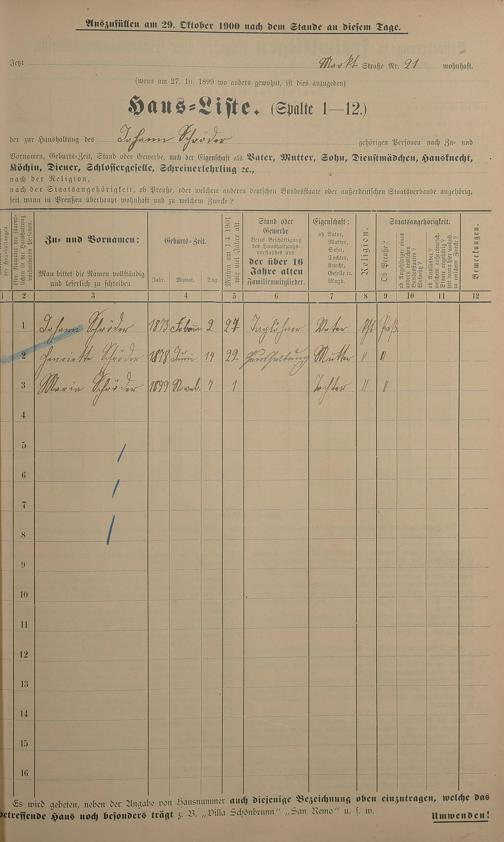 Auszufüllen am 29. Oktober 1900 nach dem Stande an diesem Tage.
Jetzt Markt Straße Nr. 21 wohnhaft.
(wenn am 27. 10. 1899 wo anders gewohnt, ist dies anzugeben)
Haus-Liste. (Spalte 1—12.)
der zur Haushaltung des Johann Schröder gehörigen Personen nach Zu- und
Vornamen, Geburts-Zeit, Stand oder Gewerbe, nach der Eigenschaft als Vater, Mutter, Sohn, Dienstmädchen, Hausknecht,
Köchin, Diener, Schlossergeselle, Schreinerlehrling ꝛc.,
nach der Religion,
nach der Staatsangehörigkeit, ob Preuße, oder welchem anderen deutschen Bundesstaate oder außerdeutschen Staatsverbande angehörig,
seit wann in Preußen überhaupt wohnhaft und zu welchem Zwecke?
Zu- und Vornamen:
Man bittet die Namen vollständig
und leserlich zu schreiben.
Geburts-Zeit.
Jahr. Monat. Tag.
Stand oder
Gewerbe
der über 16
Jahre alten
Familienmitglieder.
Eigenschaft:
ob Vater,
Mutter,
Sohn,
Tochter,
Knecht,
Geselle u.
Magd.
Religion.
Ob Preuße?
Staatsangehörigkeit.
Bemerkungen.
1 2 3 4 5 6 7 8 9 10 11 12
1 Johann Schröder 1873 2 27 Taglöhner Vater
2 Henriette Schröder 1878 Juni 19 22 Haushaltung Mutter " "
3 Maria Schröder 1899 Novb. 7 1 Tochter " "
4
5
6
7
8
9
10
11
12
13
14
15
16
Es wird gebeten, neben der Angabe von Hausnummer auch diejenige Bezeichnung oben einzutragen, welche das
betreffende Haus noch besonders trägt z. B. „Villa Schönbrunn" „San Remo" u. s. w. Umwenden!